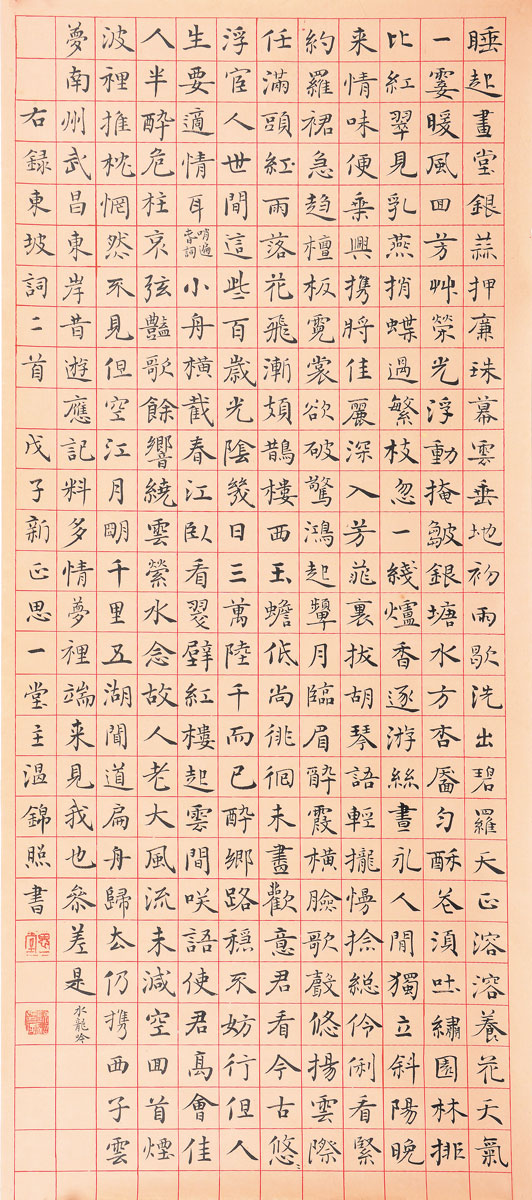 睡起畫堂銀蒜押廉珠幕雲垂地初雨歇洗出碧羅天正溶溶養花天氣
一霎暖風囬芳艸榮光浮動掩皺銀塘水方杏靨勻酥花湏吐繡園林排
比紅翠見乳燕捎蝶過繁枝忽一綫爐香逐游絲晝永人閒獨立斜陽晚
来情味便乗興携將佳麗深入芳菲裏拔胡琴語輕攏慢捻総伶俐看緊
約羅裙急趋檀板霓裳欲破驚鴻起顰月臨眉醉霞橫臉歌聲悠揚雲際
任滿頭紅雨落花飛漸鵲樓西玉蟾低尚徘徊未盡歡意君看今古悠〻
浮宦人世間這些百歲光陰幾日三萬陸千而已酔鄉路穩不妨行但人
生要適情耳 哨遍春詞 小舟橫截春江臥看翠壁紅樓起雲間咲語使君高會佳
人半酔危柱哀弦豔歌餘響繞雲縈水念故人老大風流未減空囬首煙
波裡推枕惘然不見但空江月明千里五湖聞道扁舟歸去仍携西子雲
夢南州武昌東岸昔遊應記料多情夢裡端来見我也參差是 水龍吟
右録東坡詞二首 戊子新正思一堂主温錦照書